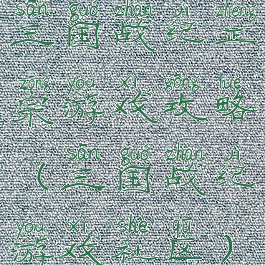 sān guó zhàn jì zhèng
三国战纪正
zōng yóu xì gōng lüè
宗游戏攻略
sān guó zhàn jì
（三国战纪
yóu xì shè qū
游戏社区）